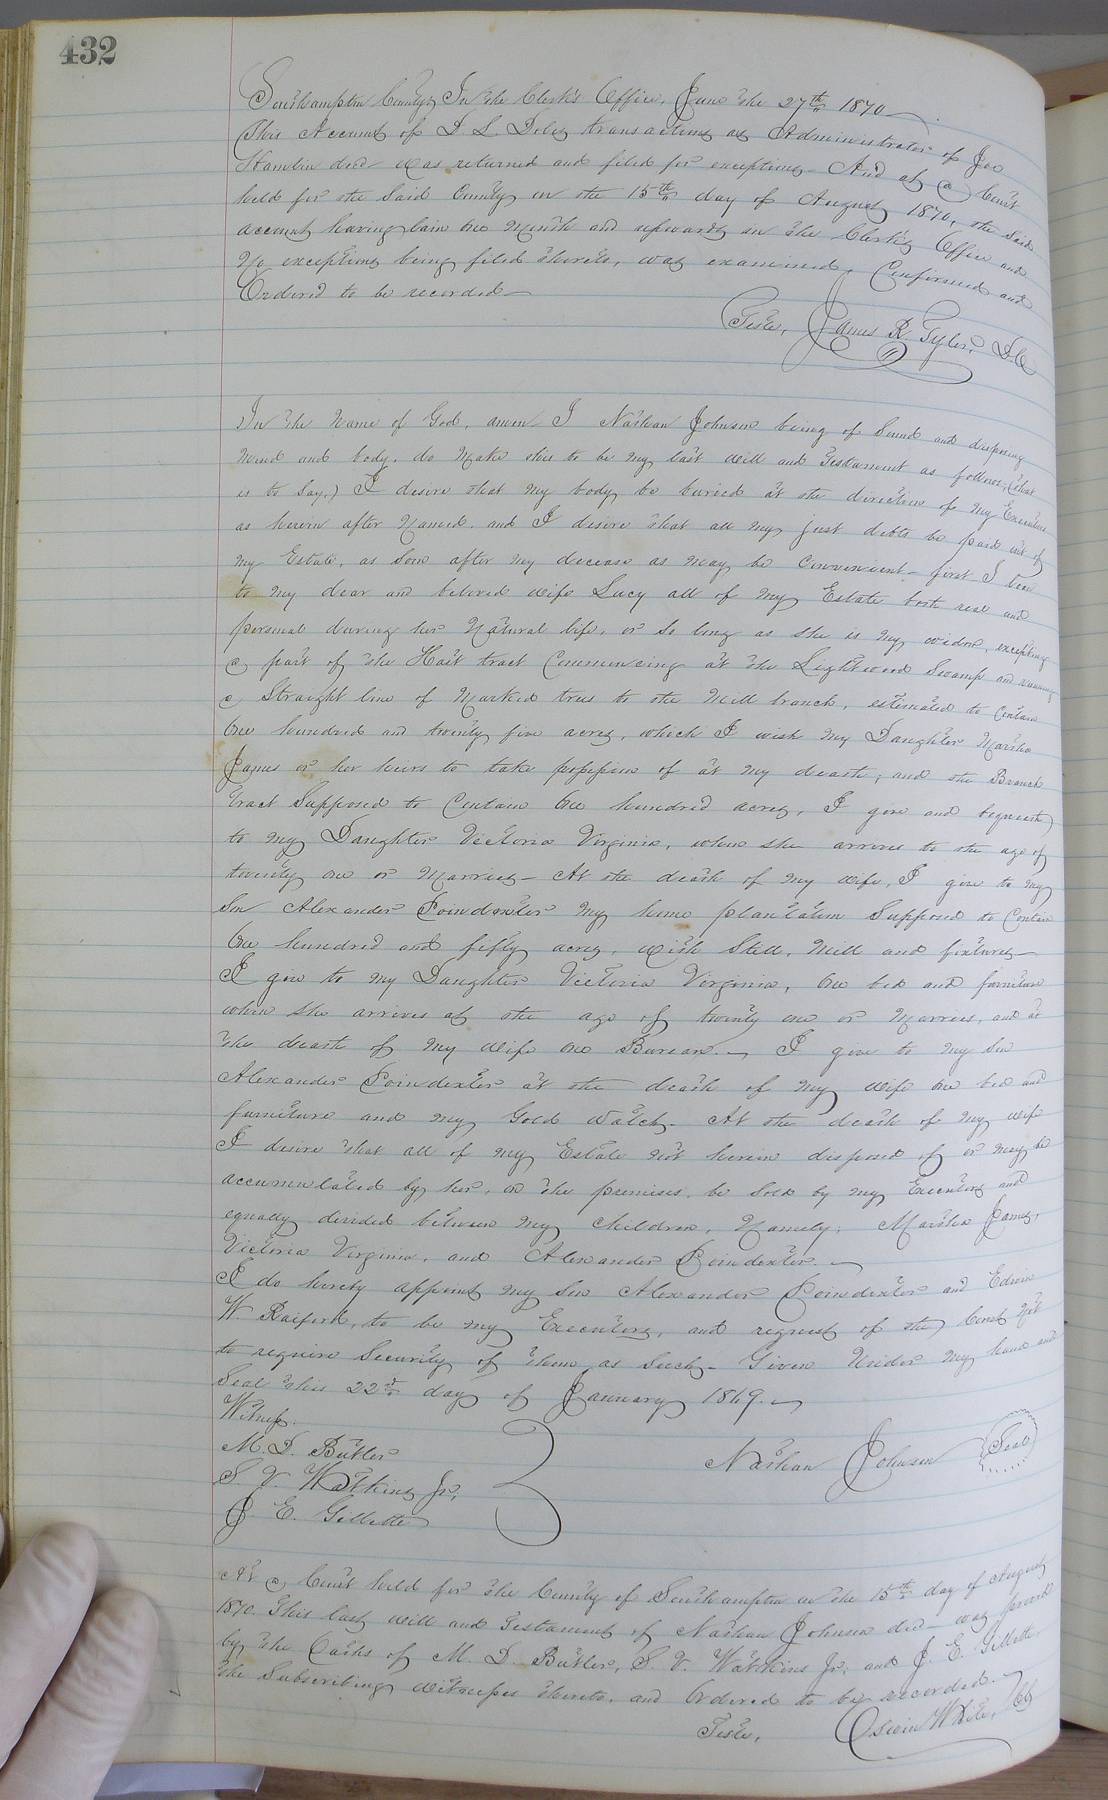 432
Southampton County, In the Clerk's Office, June the 27th 1870
This Account of D. L. Doles transactions as Administrator of Jno
Hamlin decd was returned and filed for exceptions. And at a Court
held for the said County on the 15th day of August 1870, the said
account having lain one Month and upwards in the Clerk's Office and
No exceptions being filed thereto, was examined, Confirmed and
Ordered to be recorded
Teste, James R. Tyler, D.C.
In the Name of God, amen I Nathan Johnson being of Sound and disposing
Mind and body, do Make this to be my last will and Testament as follows; (that
is to say,) I desire that my body be buried at the direction of my Executors
as herein after Named. and I desire that all my just debts be paid out of
my Estate, as soon after my decease as may be Convenient. first I lean
to my dear and beloved wife Lucy all of my Estate both real and
personal during her Natural life, or so long as she is my widow, excepting
a part of the Hait tract Commencing at the Lightwood Swamp and running
a Straight line of Marked trees to the Mill branch, estimated to Contain
One hundred and twenty five acres, which I wish my Daughter Martha
James or her heirs to take possession of at my death; and the Branch
tract Supposed to Contain One hundred acres, I give and bequeath
to my Daughter Victoria Virginia, when she arrives to the age of
twenty one or Marries. At the death of my wife, I give to my
Son Alexander Poindexter my home plantation Supposed to Contain
One hundred and fifty acres, with Still, Mill and fixtures
I give to my Daughter Victoria Virginia, One bed and furniture
when she arrives at the age of twenty one or Marries, and at
the death of my wife one Bureau. I give to my Son
Alexander Poindexter at the death of my wife One bed and
furniture and my Gold Watch. At the death of my wife
I desire that all of my Estate Not herein disposed of or may be
accumulated by her, on the premises, be Sold by my Executors and
equally divided between my children, Namely; Martha James,
Victoria Virginia, and Alexander Poindexter.
I do hereby appoint my Son Alexander Poindexter and Edwin
W. Raiford, to be my Executors, and request of the Court Not
to require Security of them as Such. Given Under My hand and
Seal this 22d day of January 1869.
Witness.
M. D. Butler
S. V. Watkins Jr,
J. E. Gillette
Nathan Johnson Seal
At a Court held for the County of Southampton on the 15th day of August
1870. This last will and Testament of Nathan Johnson decd was proved
by the Oaths of M. D. Butler, S. V. Watkins Jr, and J. E. Gillette
the Subscribing Witnesses thereto, and Ordered to be recorded.
Teste, Oswin White, Clk